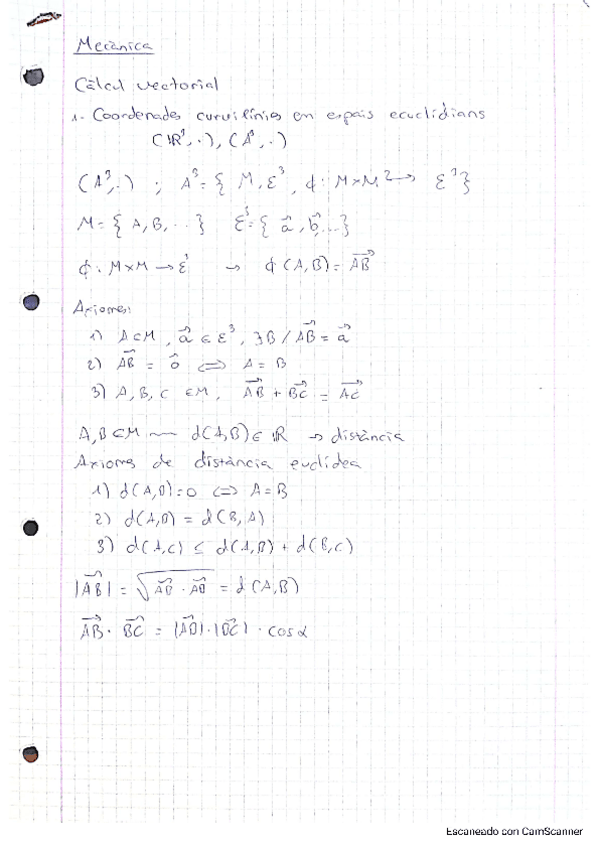 Mecànica
Càlcul vectorial
1.- Coordenades curvilínies en espais ecuclidians
(ℝ³, ·), (A³, ·)
(A³, ·) ; A³ = { M, ε³, ϕ: M×M² → ε³ }
M = { A, B, ... } ε³ = { a⃗, b⃗, ... }
ϕ: M×M → ε³ → ϕ(A, B) = AB⃗
Axiomes:
1) A∈M, a⃗ ∈ ε³, ∃B / AB⃗ = a⃗
2) AB⃗ = 0⃗ ⟺ A = B
3) A, B, C ∈M, AB⃗ + BC⃗ = AC⃗
A, B∈M ~ d(A,B)∈ ℝ → distància
Axiomes de distància euclídea
1) d(A,B)=0 ⟺ A=B
2) d(A,B) = d(B,A)
3) d(A,C) ≤ d(A,B) + d(B,C)
|AB⃗| = √(AB⃗ · AB⃗) = d(A,B)
AB⃗ · BC⃗ = |AB⃗|·|BC⃗| · cosα
Escaneado con CamScanner